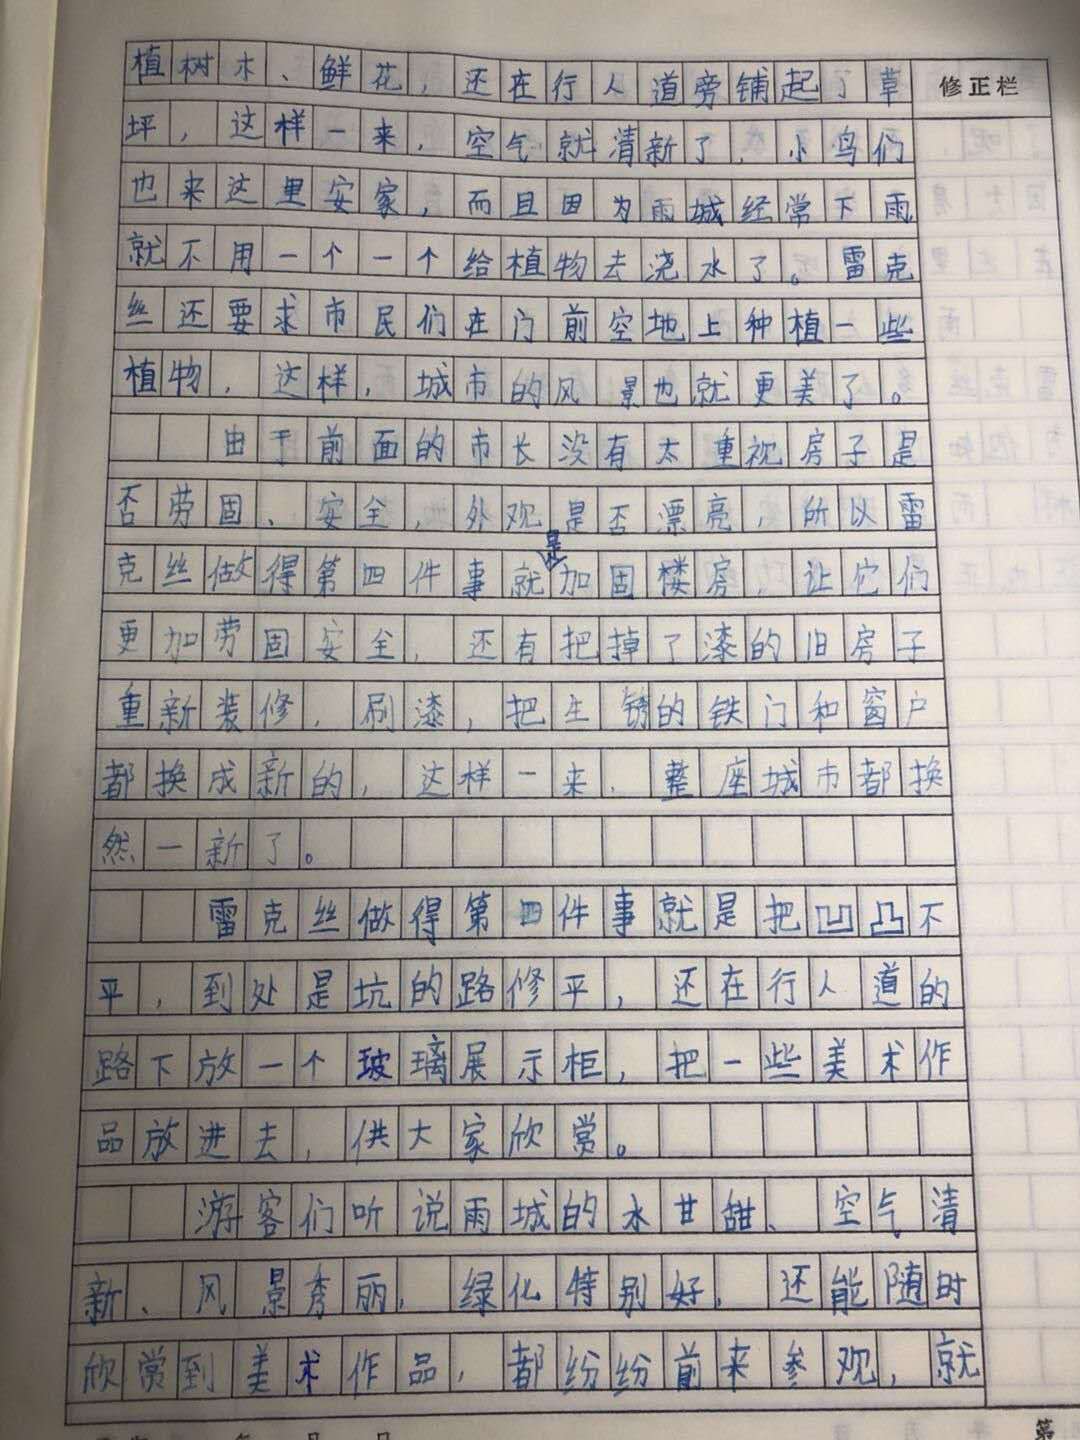 植树木、鲜花,还在行人道旁铺起了草
修正栏
坪,这样一来,空气就清新了,小鸟们
也来这里安家,而且因为雨城经常下雨
就不用一个一个给植物去浇水了。雷克
丝还要求市民们在门前空地上种植一些
植物,这样,城市的风景也就更美了。
由于前面的市长没有太重视房子是
否劳固、安全,外观是否漂亮,所以雷
克丝做得第四件事就是加固楼房,让它们
更加劳固安全,还有把掉了漆的旧房子
重新装修,刷漆,把生锈的铁门和窗户
都换成新的,这样一来,整座城市都换
然一新了。
雷克丝做得第四件事就是把凹凸不
平,到处是坑的路修平,还在行人道的
路下放一个玻璃展示柜,把一些美术作
品放进去,供大家欣赏。
游客们听说雨城的水甘甜、空气清
新、风景秀丽,绿化特别好,还能随时
欣赏到美术作品,都纷纷前来参观,就
第